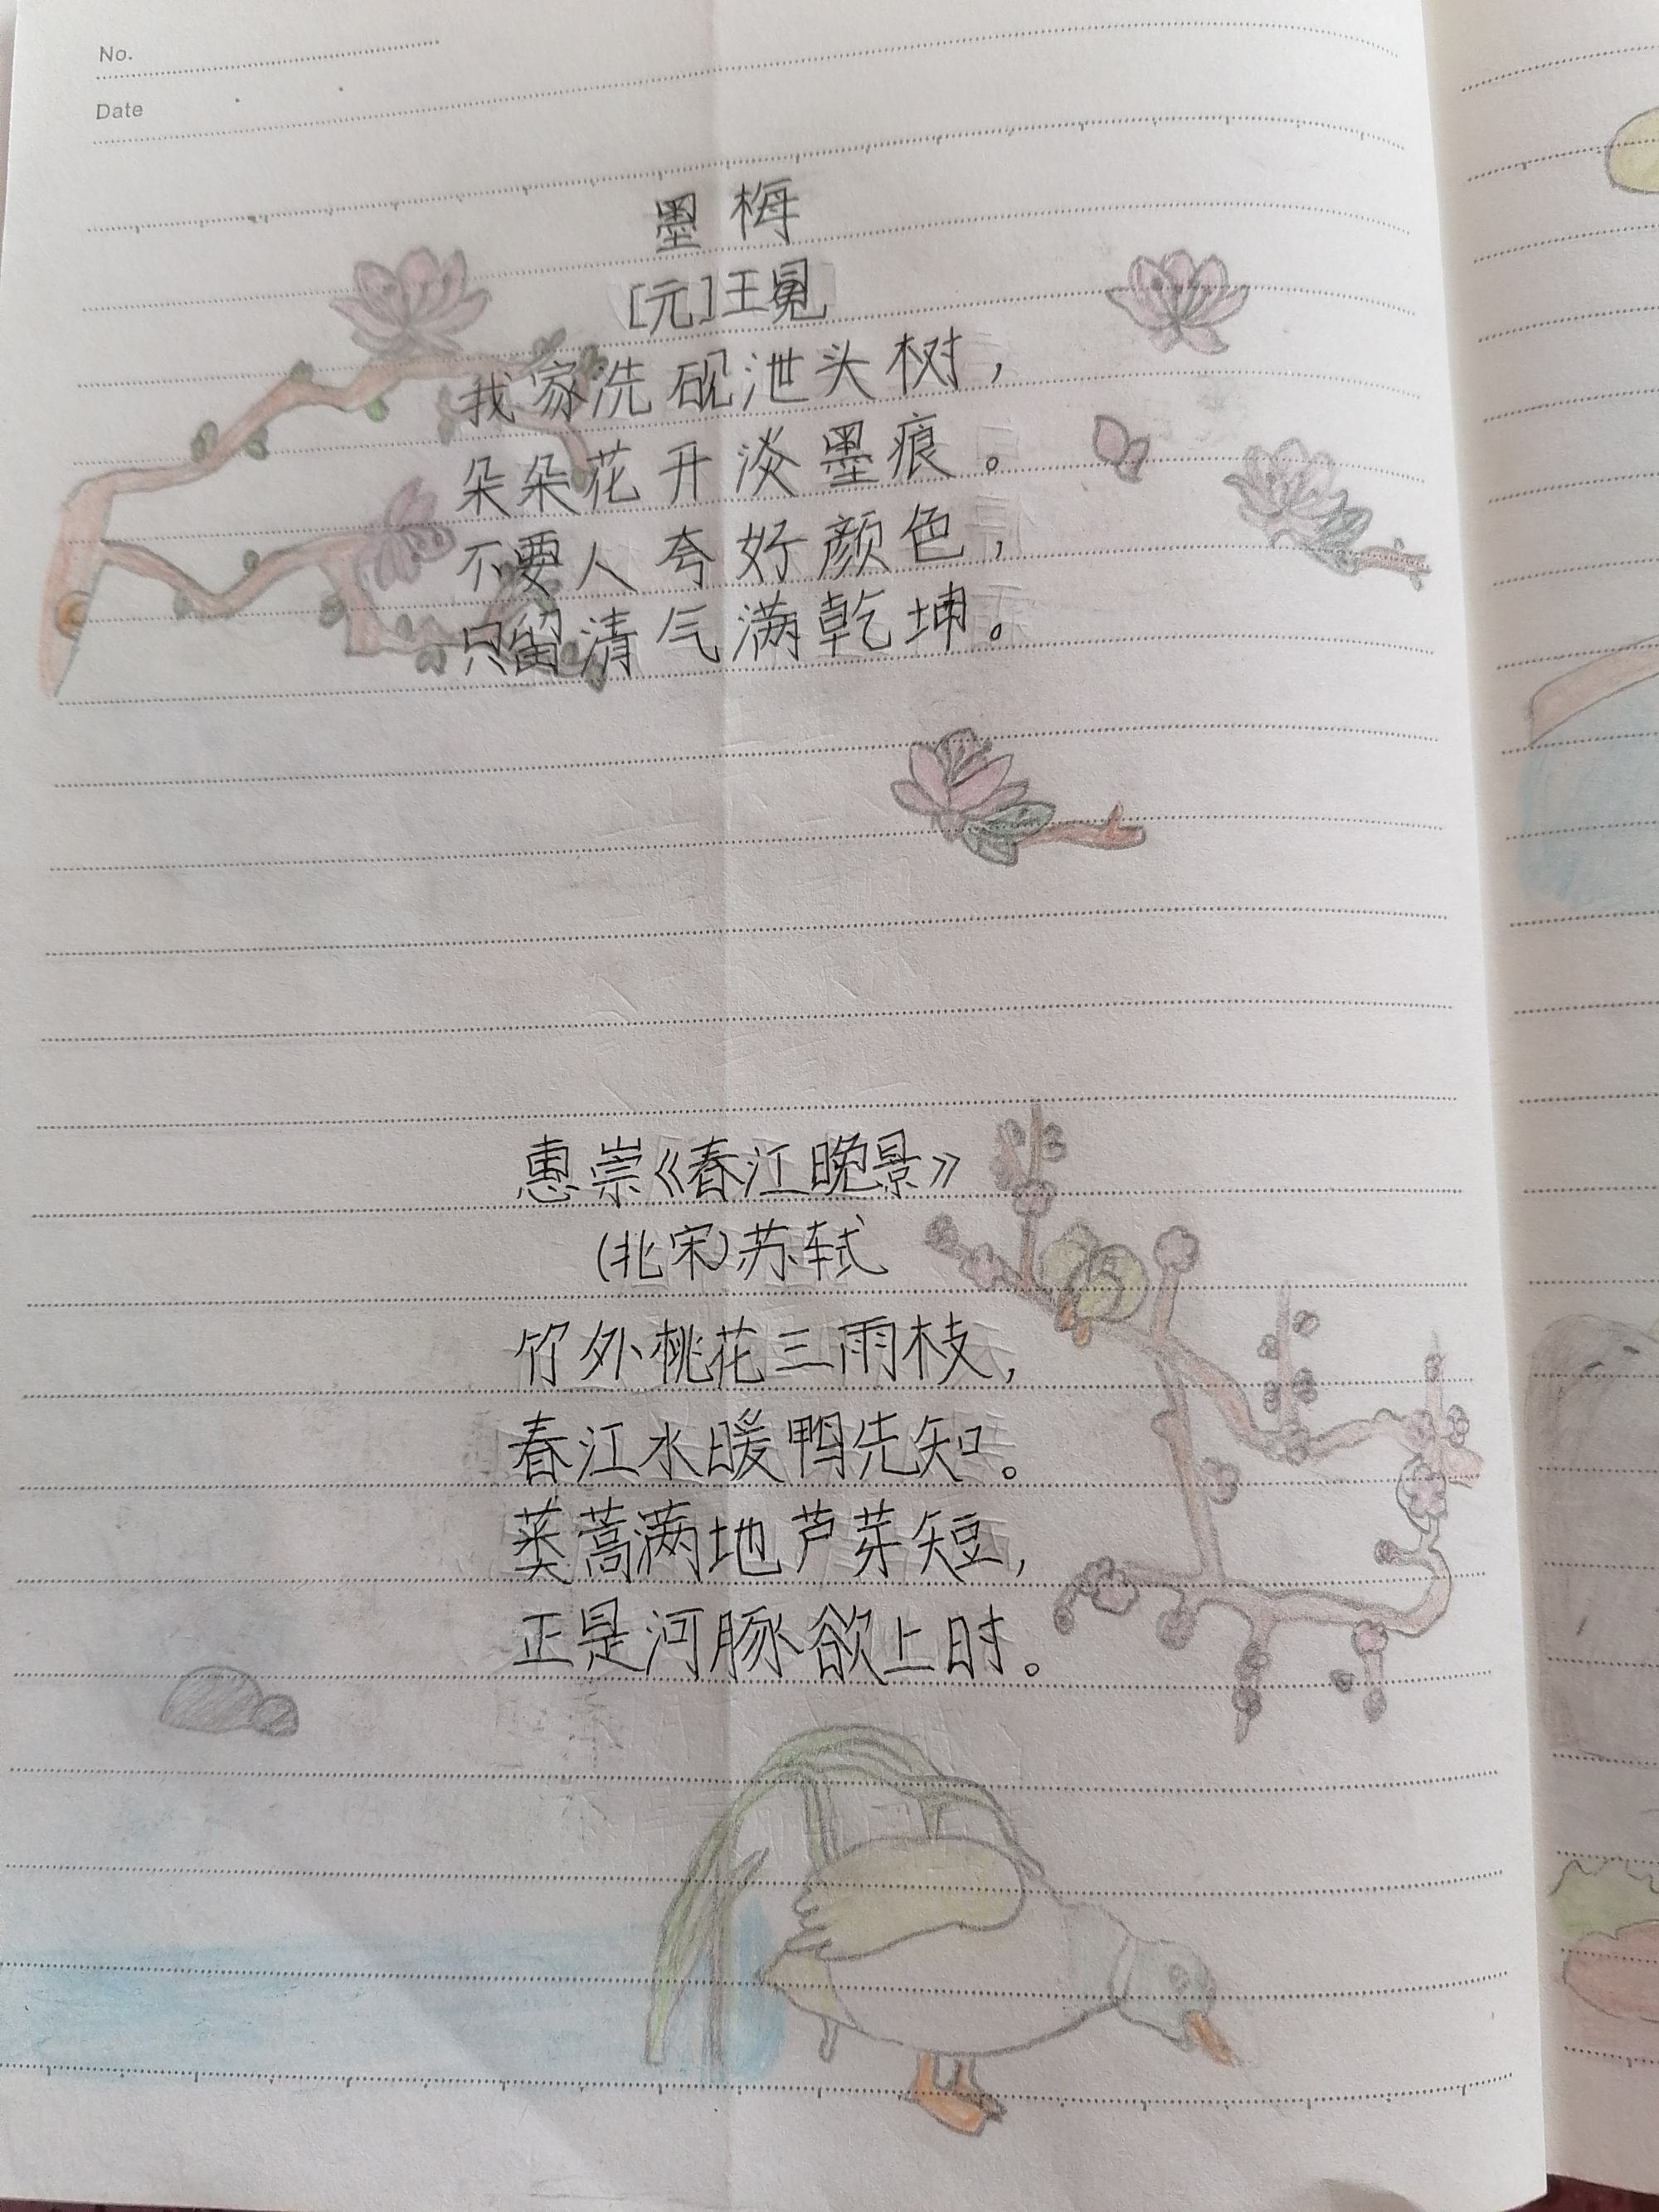 No.
Date
墨梅
[元]王冕
我家洗砚泄头树，
朵朵花开淡墨痕。
不要人夸好颜色，
只留清气满乾坤。
惠崇《春江晚景》
(北宋)苏轼
竹外桃花三雨枝，
春江水暖鸭先知。
蒌蒿满地芦芽短，
正是河豚欲上时。